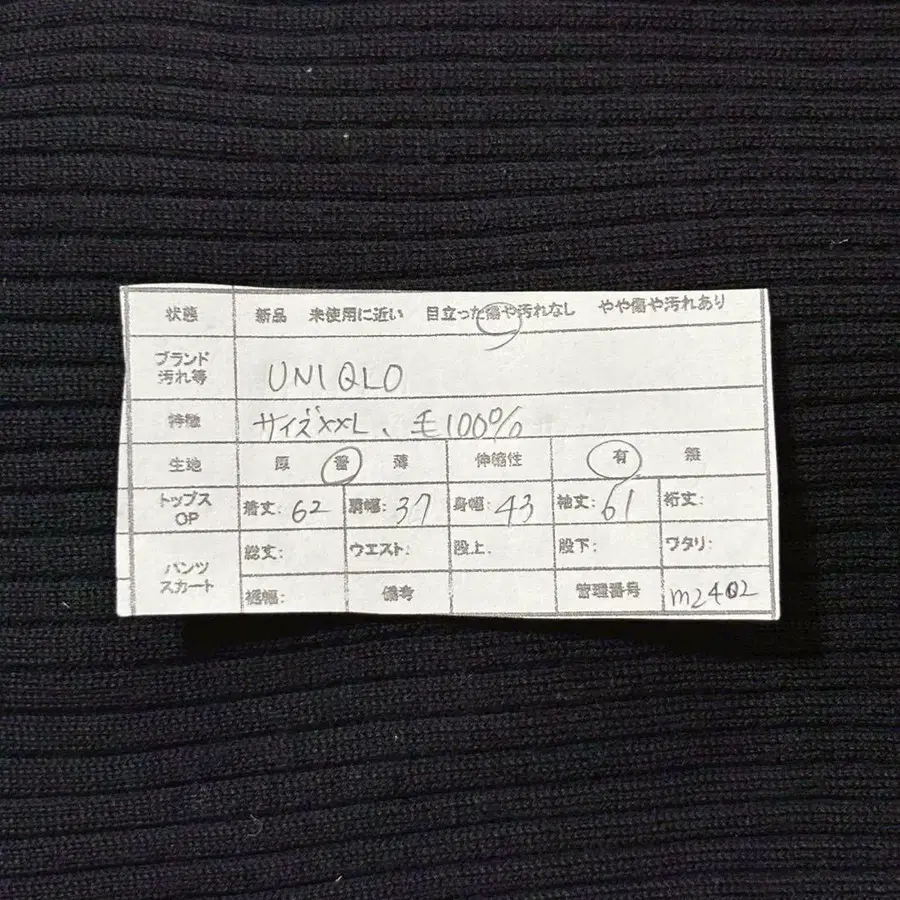 状態 新品 未使用に近い 目立った傷や汚れなし やや傷や汚れあり
ブランド
汚れ等 UNIQLO
特徴 サイズXXL、毛100%
生地 厚 普 薄 伸縮性 有 無
トップス
OP 着丈: 62 肩幅: 37 身幅: 43 袖丈: 61 裄丈:
パンツ
スカート 総丈: ウエスト: 股上. 股下: ワタリ:
裾幅: 備考 管理番号 m2402